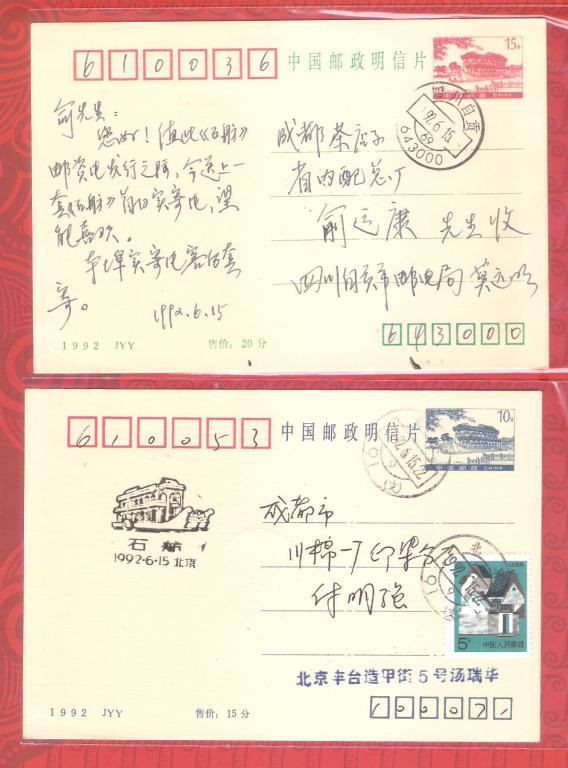 610036
中国邮政明信片
15分
中国邮政 CHINA
四川自贡
92.6.15
69
643000
俞先生：
您好！值此《石舫》
邮资片发行之际，今送上一
套《石舫》首日实寄片，望
能喜欢。
寄。
1992.6.15
成都茶店子
省内配总厂
俞运康 先生收
四川自贡市邮电局
643000
1992 JYY
售价：20分
610053
中国邮政明信片
10分
中国邮政 CHINA
石舫
1992·6·15 北京
成都市
川棉一厂印染分厂
付明强
北京
5分
中国人民邮政
北京丰台造甲街5号汤瑞华
100071
1992 JYY
售价：15分